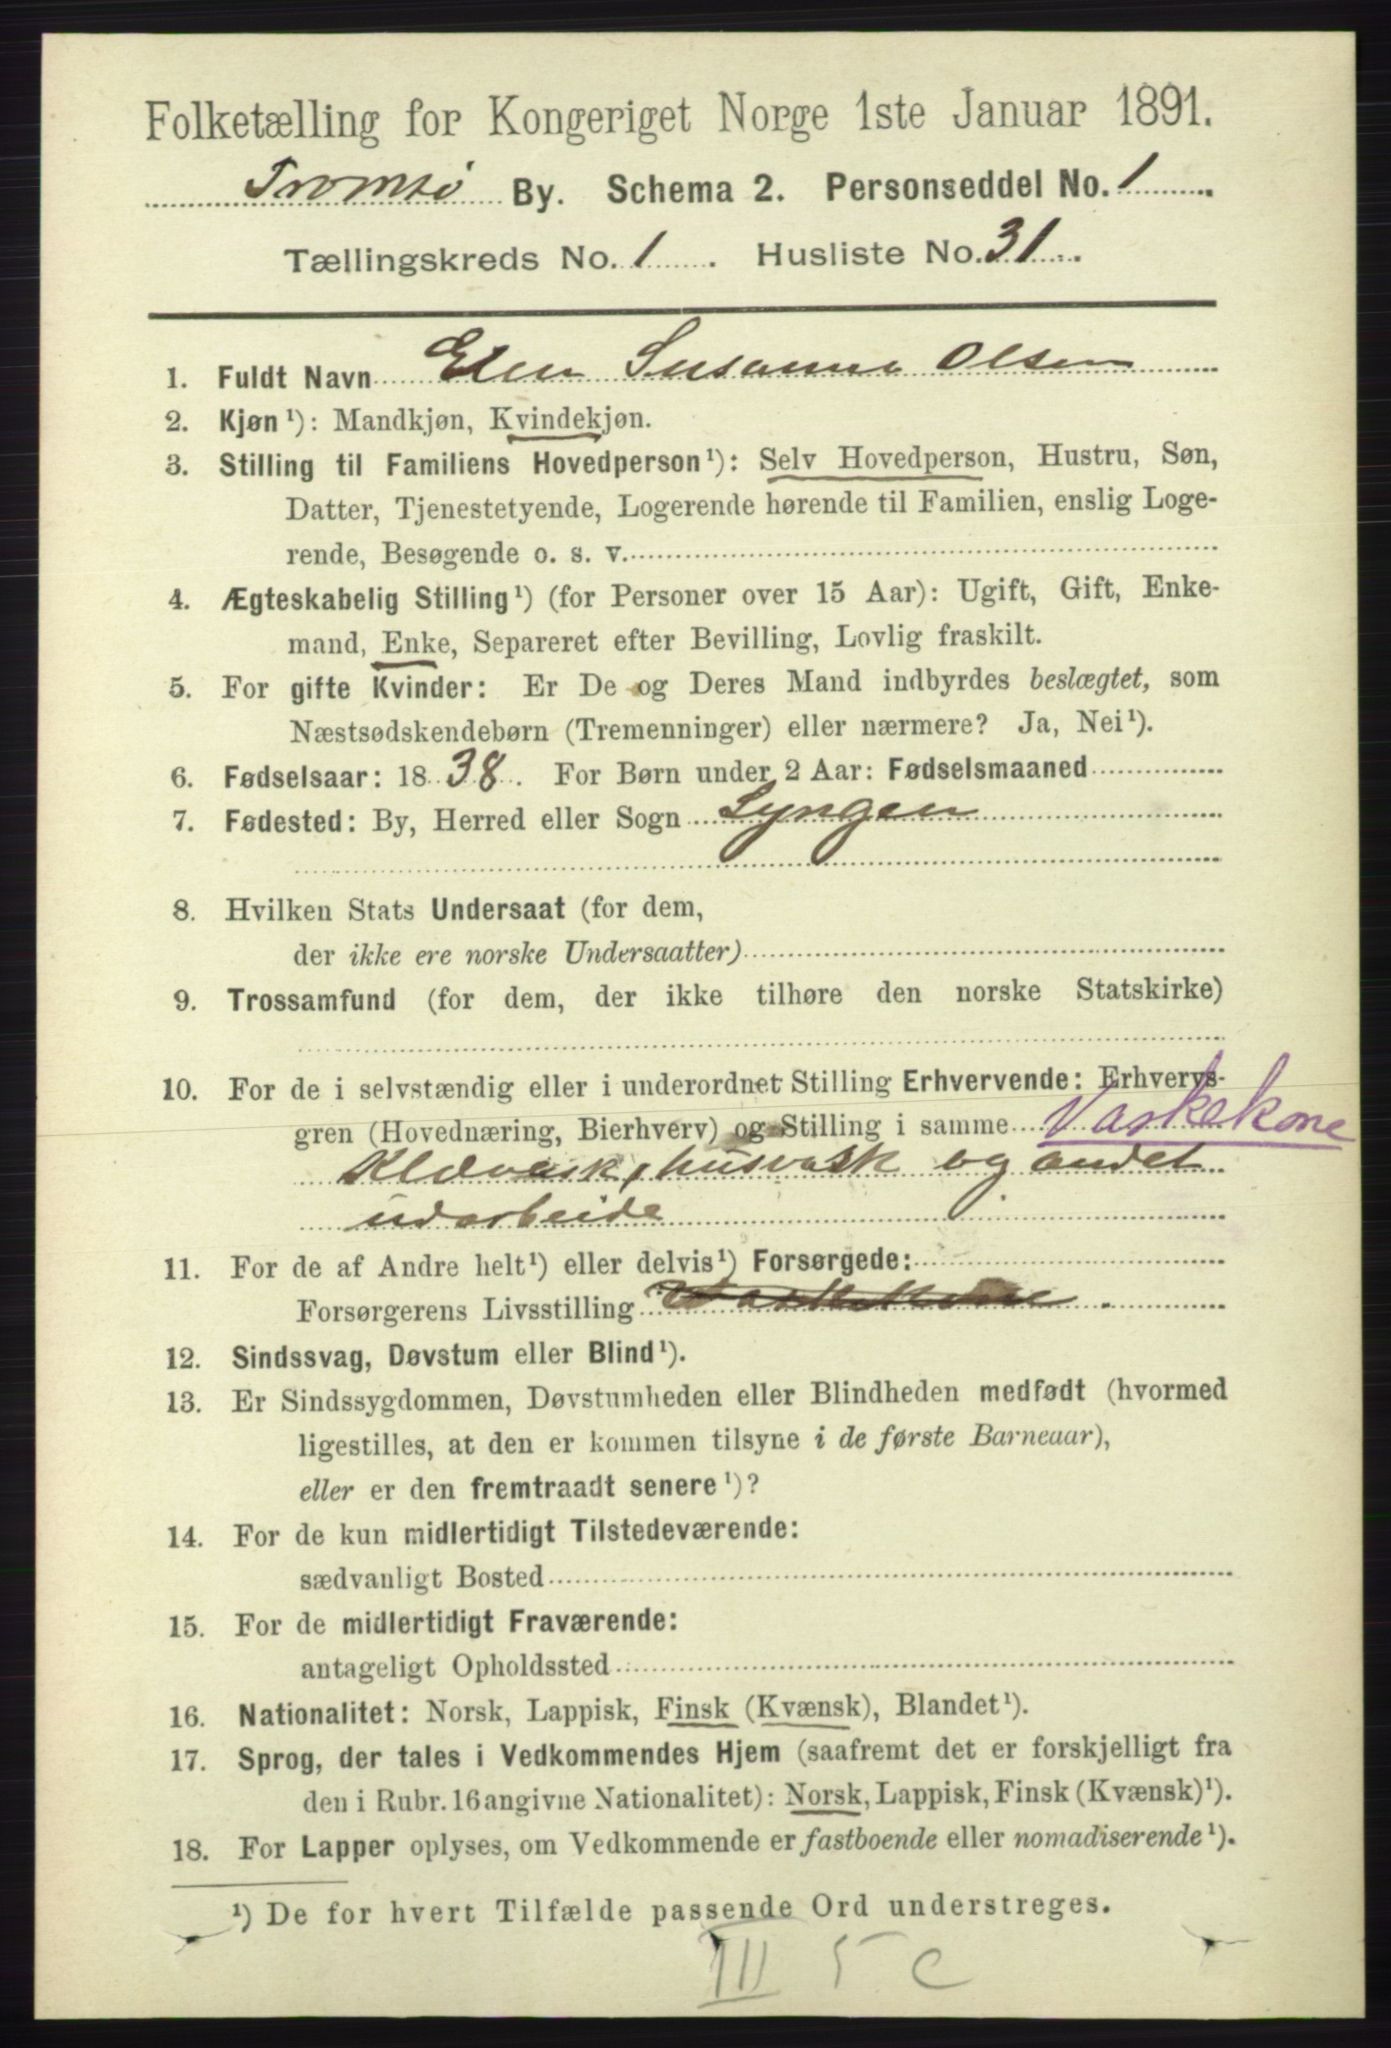 Folketælling for Kongeriget Norge 1ste Januar 1891.
Tromsø By. Schema 2. Personseddel No. 1
Tællingskreds No. 1. Husliste No. 31.
1. Fuldt Navn Elen Susanna Olsen
2. Kjøn ¹): Mandkjøn, Kvindekjøn.
3. Stilling til Familiens Hovedperson¹): Selv Hovedperson, Hustru, Søn,
Datter, Tjenestetyende, Logerende hørende til Familien, enslig Loge-
rende, Besøgende o. s. v.
4. Ægteskabelig Stilling¹) (for Personer over 15 Aar): Ugift, Gift, Enke-
mand, Enke, Separeret efter Bevilling, Lovlig fraskilt.
5. For gifte Kvinder: Er De og Deres Mand indbyrdes beslægtet, som
Næstsødskendebørn (Tremenninger) eller nærmere? Ja, Nei¹).
6. Fødselsaar: 1838. For Børn under 2 Aar: Fødselsmaaned
7. Fødested: By, Herred eller Sogn Lyngen
8. Hvilken Stats Undersaat (for dem,
der ikke ere norske Undersaatter)
9. Trossamfund (for dem, der ikke tilhøre den norske Statskirke)
10. For de i selvstændig eller i underordnet Stilling Erhvervende: Erhvervs-
gren (Hovednæring, Bierhverv) og Stilling i samme Vaskekone
Klævask, husvask og andet
udarbeide
11. For de af Andre helt¹) eller delvis¹) Forsørgede:
Forsørgerens Livsstilling Vaskekone
12. Sindssvag, Døvstum eller Blind¹).
13. Er Sindssygdommen, Døvstumheden eller Blindheden medfødt (hvormed
ligestilles, at den er kommen tilsyne i de første Barneaar),
eller er den fremtraadt senere ¹)?
14. For de kun midlertidigt Tilstedeværende:
sædvanligt Bosted
15. For de midlertidigt Fraværende:
antageligt Opholdssted
16. Nationalitet: Norsk, Lappisk, Finsk (Kvænsk), Blandet¹).
17. Sprog, der tales i Vedkommendes Hjem (saafremt det er forskjelligt fra
den i Rubr. 16 angivne Nationalitet): Norsk, Lappisk, Finsk (Kvænsk)¹).
18. For Lapper oplyses, om Vedkommende er fastboende eller nomadiserende¹).
¹) De for hvert Tilfælde passende Ord understreges.
III 5 c